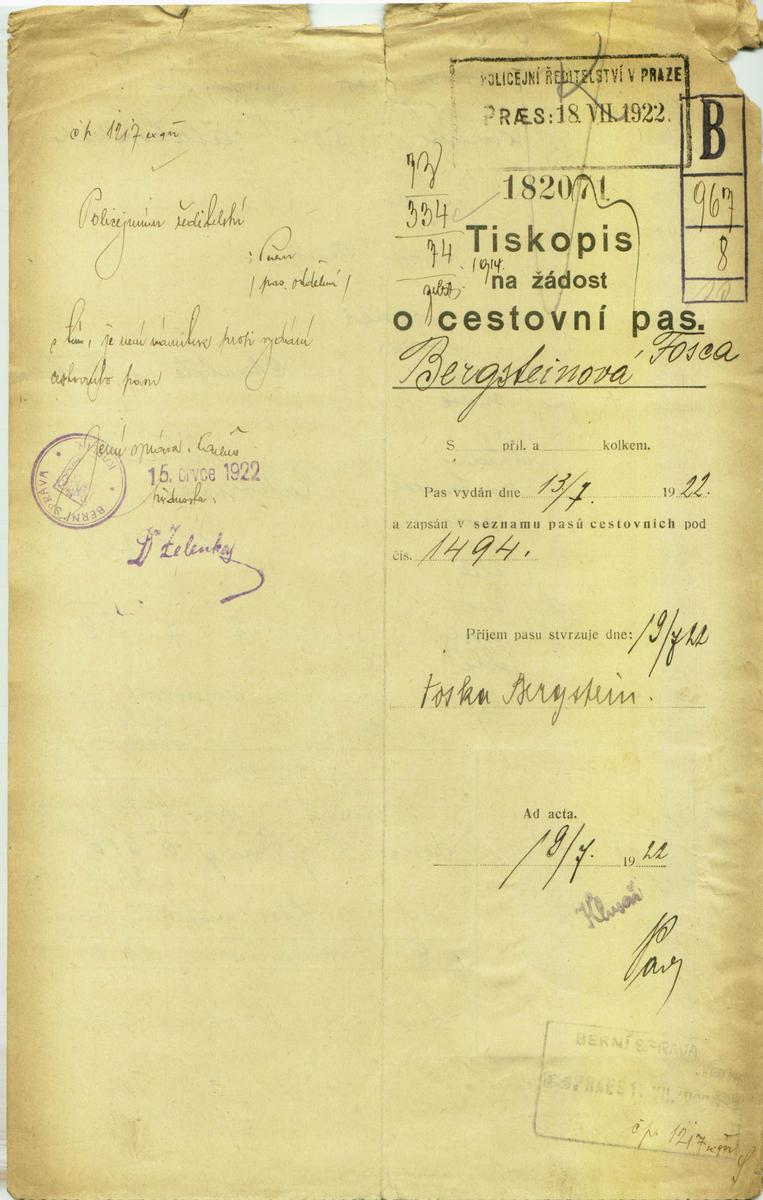 čp. 1217
Policejnímu ředitelství
v Praze
/ pas. oddělení /
s tím, že není námitek proti vydání
cestovního pasu
BERNÍ SPRÁVA
15. črvce 1922
Přednosta:
Dr Zelenka
POLICEJNÍ ŘEDITELSTVÍ V PRAZE
PRÆS: 18. VII. 1922.
B
967
8
334
74
1914
182071
Tiskopis
na žádost
o cestovní pas.
Bergsteinová Fosca
S příl. a kolkem.
Pas vydán dne 13/7. 1922.
a zapsán v seznamu pasů cestovních pod
čís. 1494.
Příjem pasu stvrzuje dne: 19/7 22
Foska Bergstein.
Ad acta.
19/7. 1922
BERNÍ SPRÁVA
čp. 1217